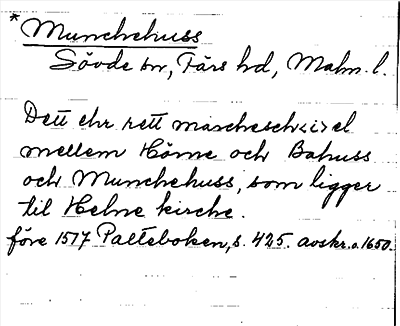 * Munchehuss
Sövde sn, Färs hd, Malm. l.
Dett ehr rett marchesch<i>el
mellem Höme och Bahuss
och Munchehuss, som ligger
til Helne kirche.
före 1517 Palteboken, s. 425. avskr. o. 1650.